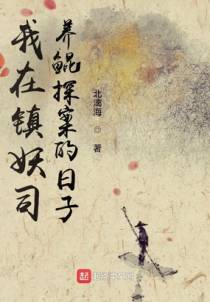 我在镇妖司
养鲲探案的日子
北澫海◎著